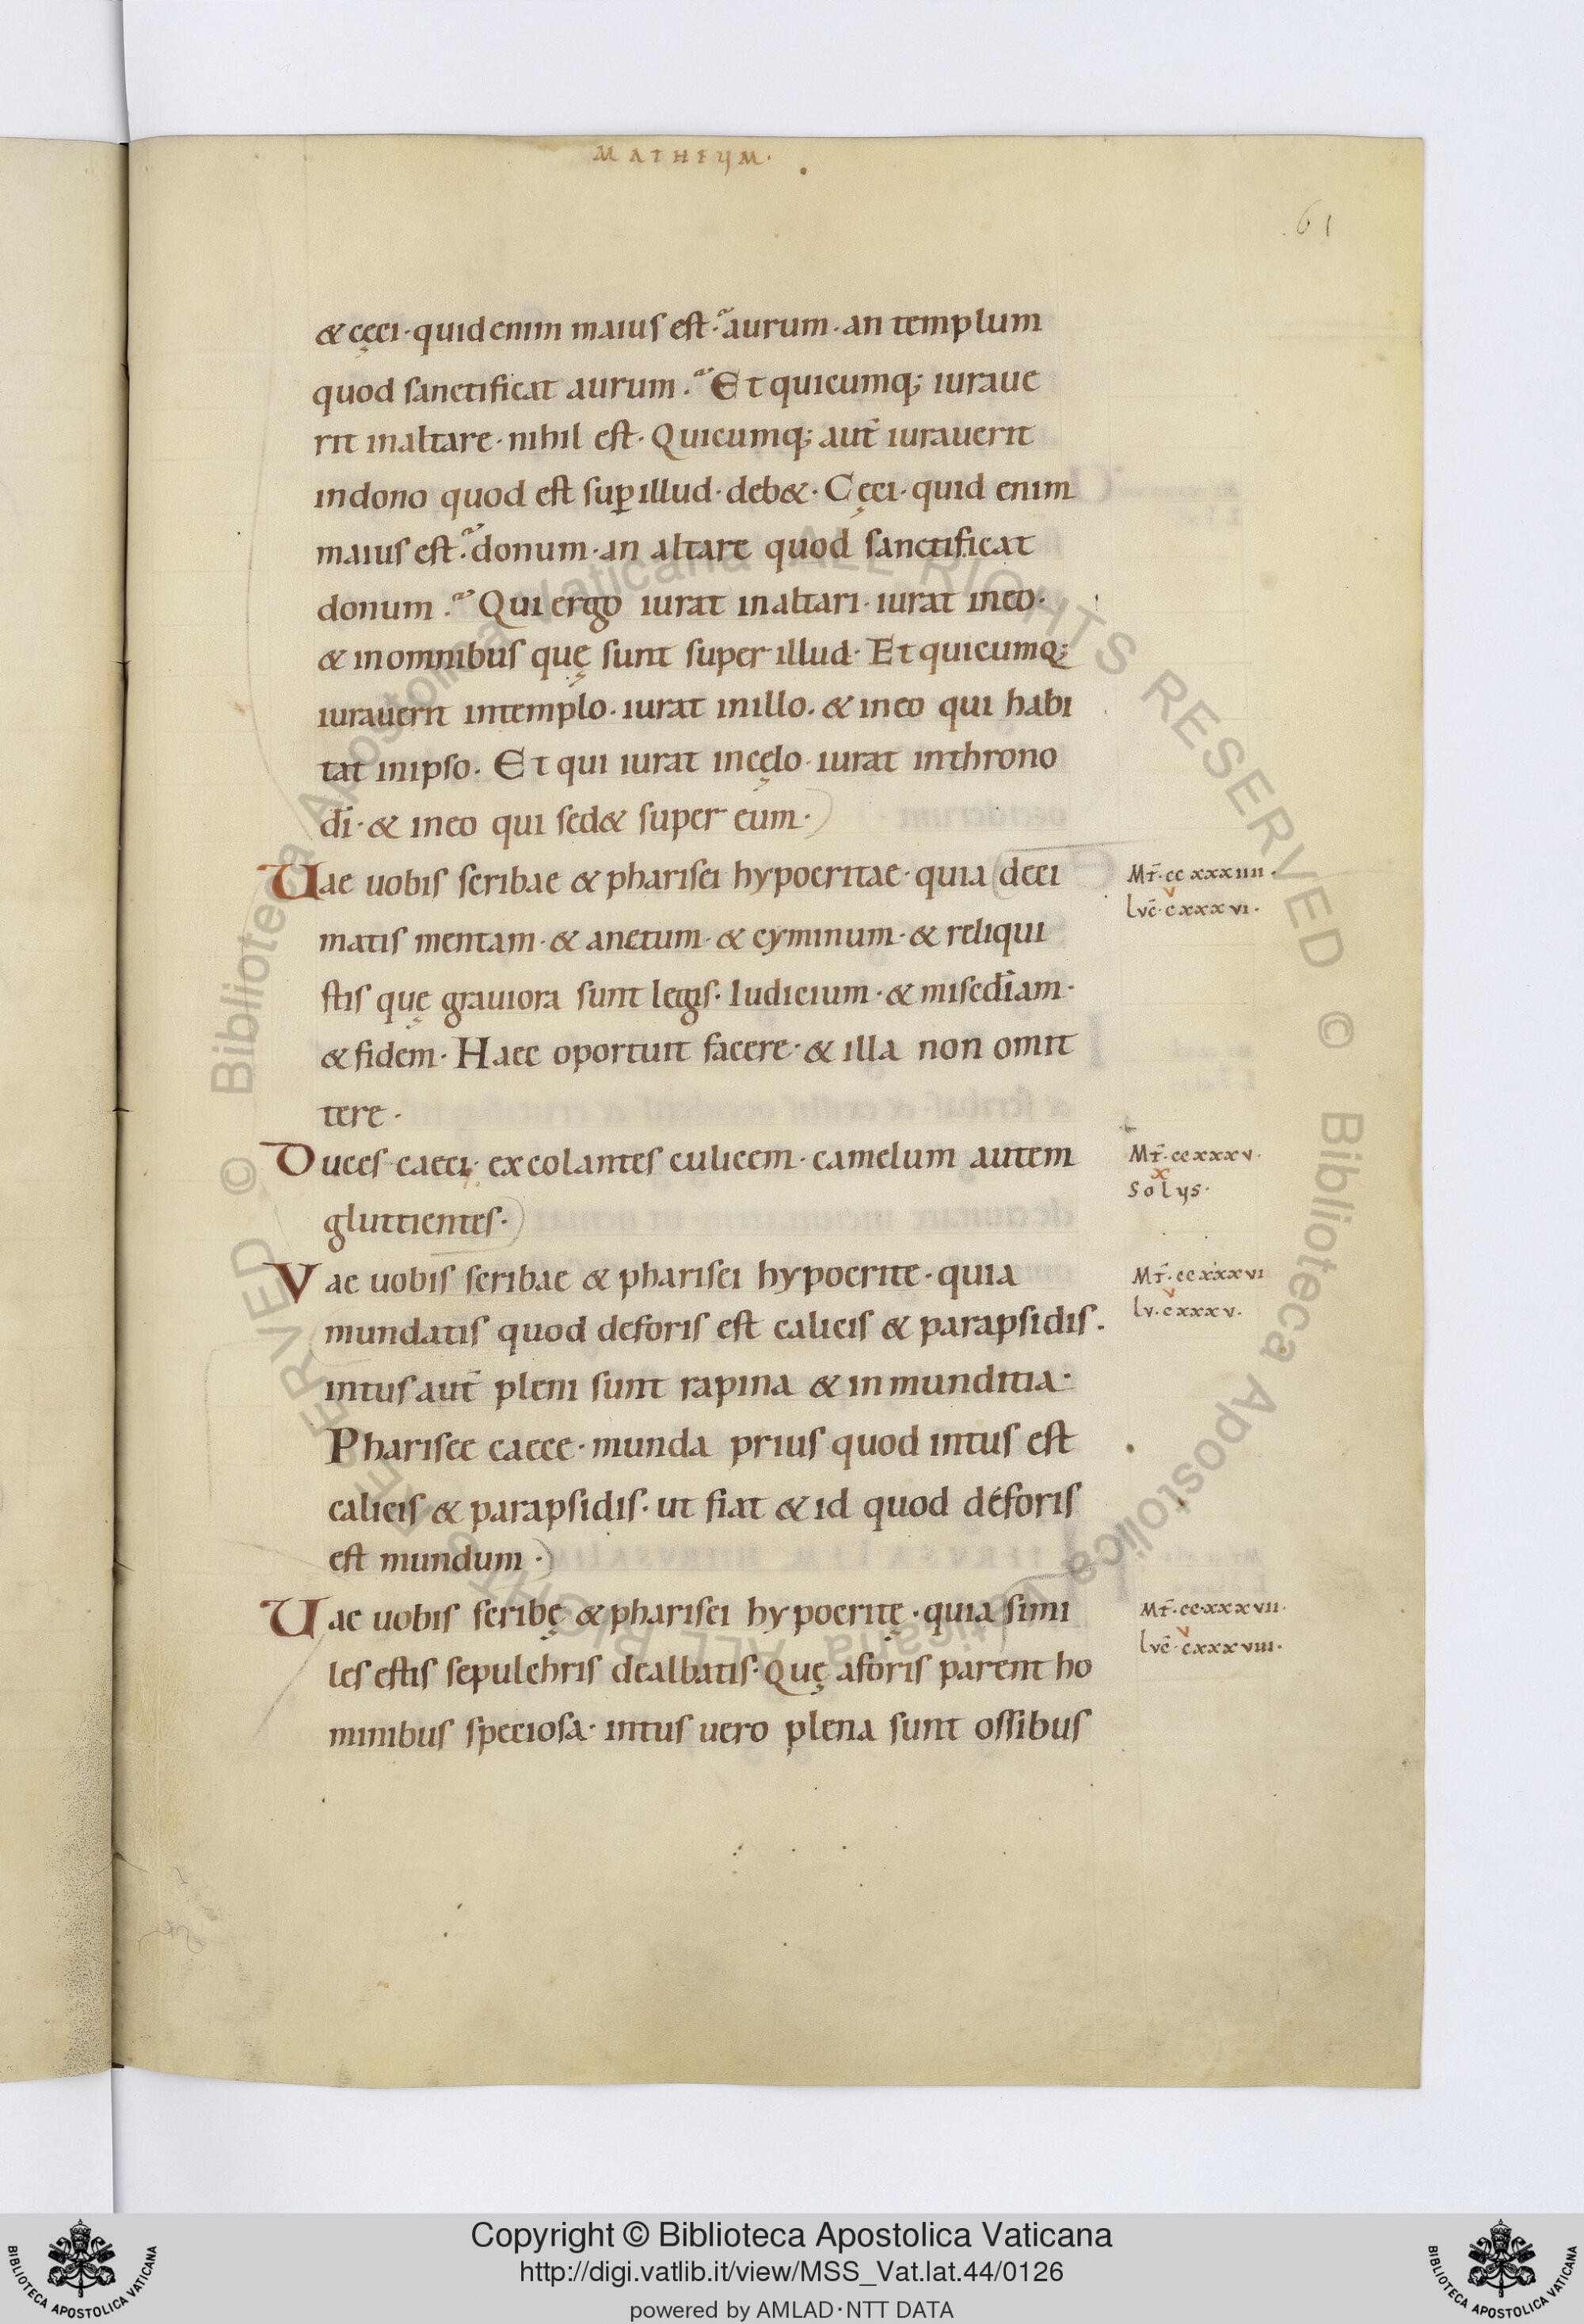 MATHEUM·
61
& cęci· quid enim maius est·̃ aurum· an templum
quod sanctificat aurum·̃ Et quicumq; iuraue
rit in altare· nihil est· Quicumq; aut̄ iurauerit
in dono quod est sup̱ illud· deb&· Cęci· quid enim
maius est·̃ donum· an altare quod sanctificat
donum·̃ Qui ergo iurat in altari· iurat in eo·
& in omnibus quę sunt super illud· Et quicumq;
iurauerit in templo· iurat in illo· & in eo qui habi
tat in ipso· Et qui iurat in cęlo· iurat in throno
dī· & in eo qui sed& super eum·
Uae uobis scribae & pharisei hypocritae· quia deci
Mt̄·ccxxxiiii·
v
Luc̄·cxxxvi·
matis mentam· & anetum· & cyminum· & reliqui
stis quę grauiora sunt legis· Iudicium· & misc̄diam·
& fidem· Haec oportuit facere· & illa non omit
tere·
Duces caeci· excolantes culicem· camelum autem
Mt̄·ccxxxv·
x
Solus·
gluttientes·
Vae uobis scribae & pharisei hypocrite· quia
Mt̄·ccxxxvi
v
Lu·cxxxv·
mundatis quod deforis est calicis & parapsidis·
intus aut̄ pleni sunt rapina & inmunditia·
Pharisee caece· munda prius quod intus est
calicis & parapsidis· ut fiat & id quod déforis
est mundum·
Uae uobis scribę & pharisei hypocritę· quia simi
Mt̄·ccxxxvii·
v
Luc̄·cxxxviii·
les estis sepulchris dealbatis· Quę aforis parent ho
minibus speciosa· intus uero plena sunt ossibus
© Biblioteca Apostolica Vaticana ALL RIGHTS RESERVED © Biblioteca Apostolica Vaticana ALL RIGHTS RESERVED
Copyright © Biblioteca Apostolica Vaticana
http://digi.vatlib.it/view/MSS_Vat.lat.44/0126
powered by AMLAD·NTT DATA
BIBLIOTECA APOSTOLICA VATICANA
BIBLIOTECA APOSTOLICA VATICANA